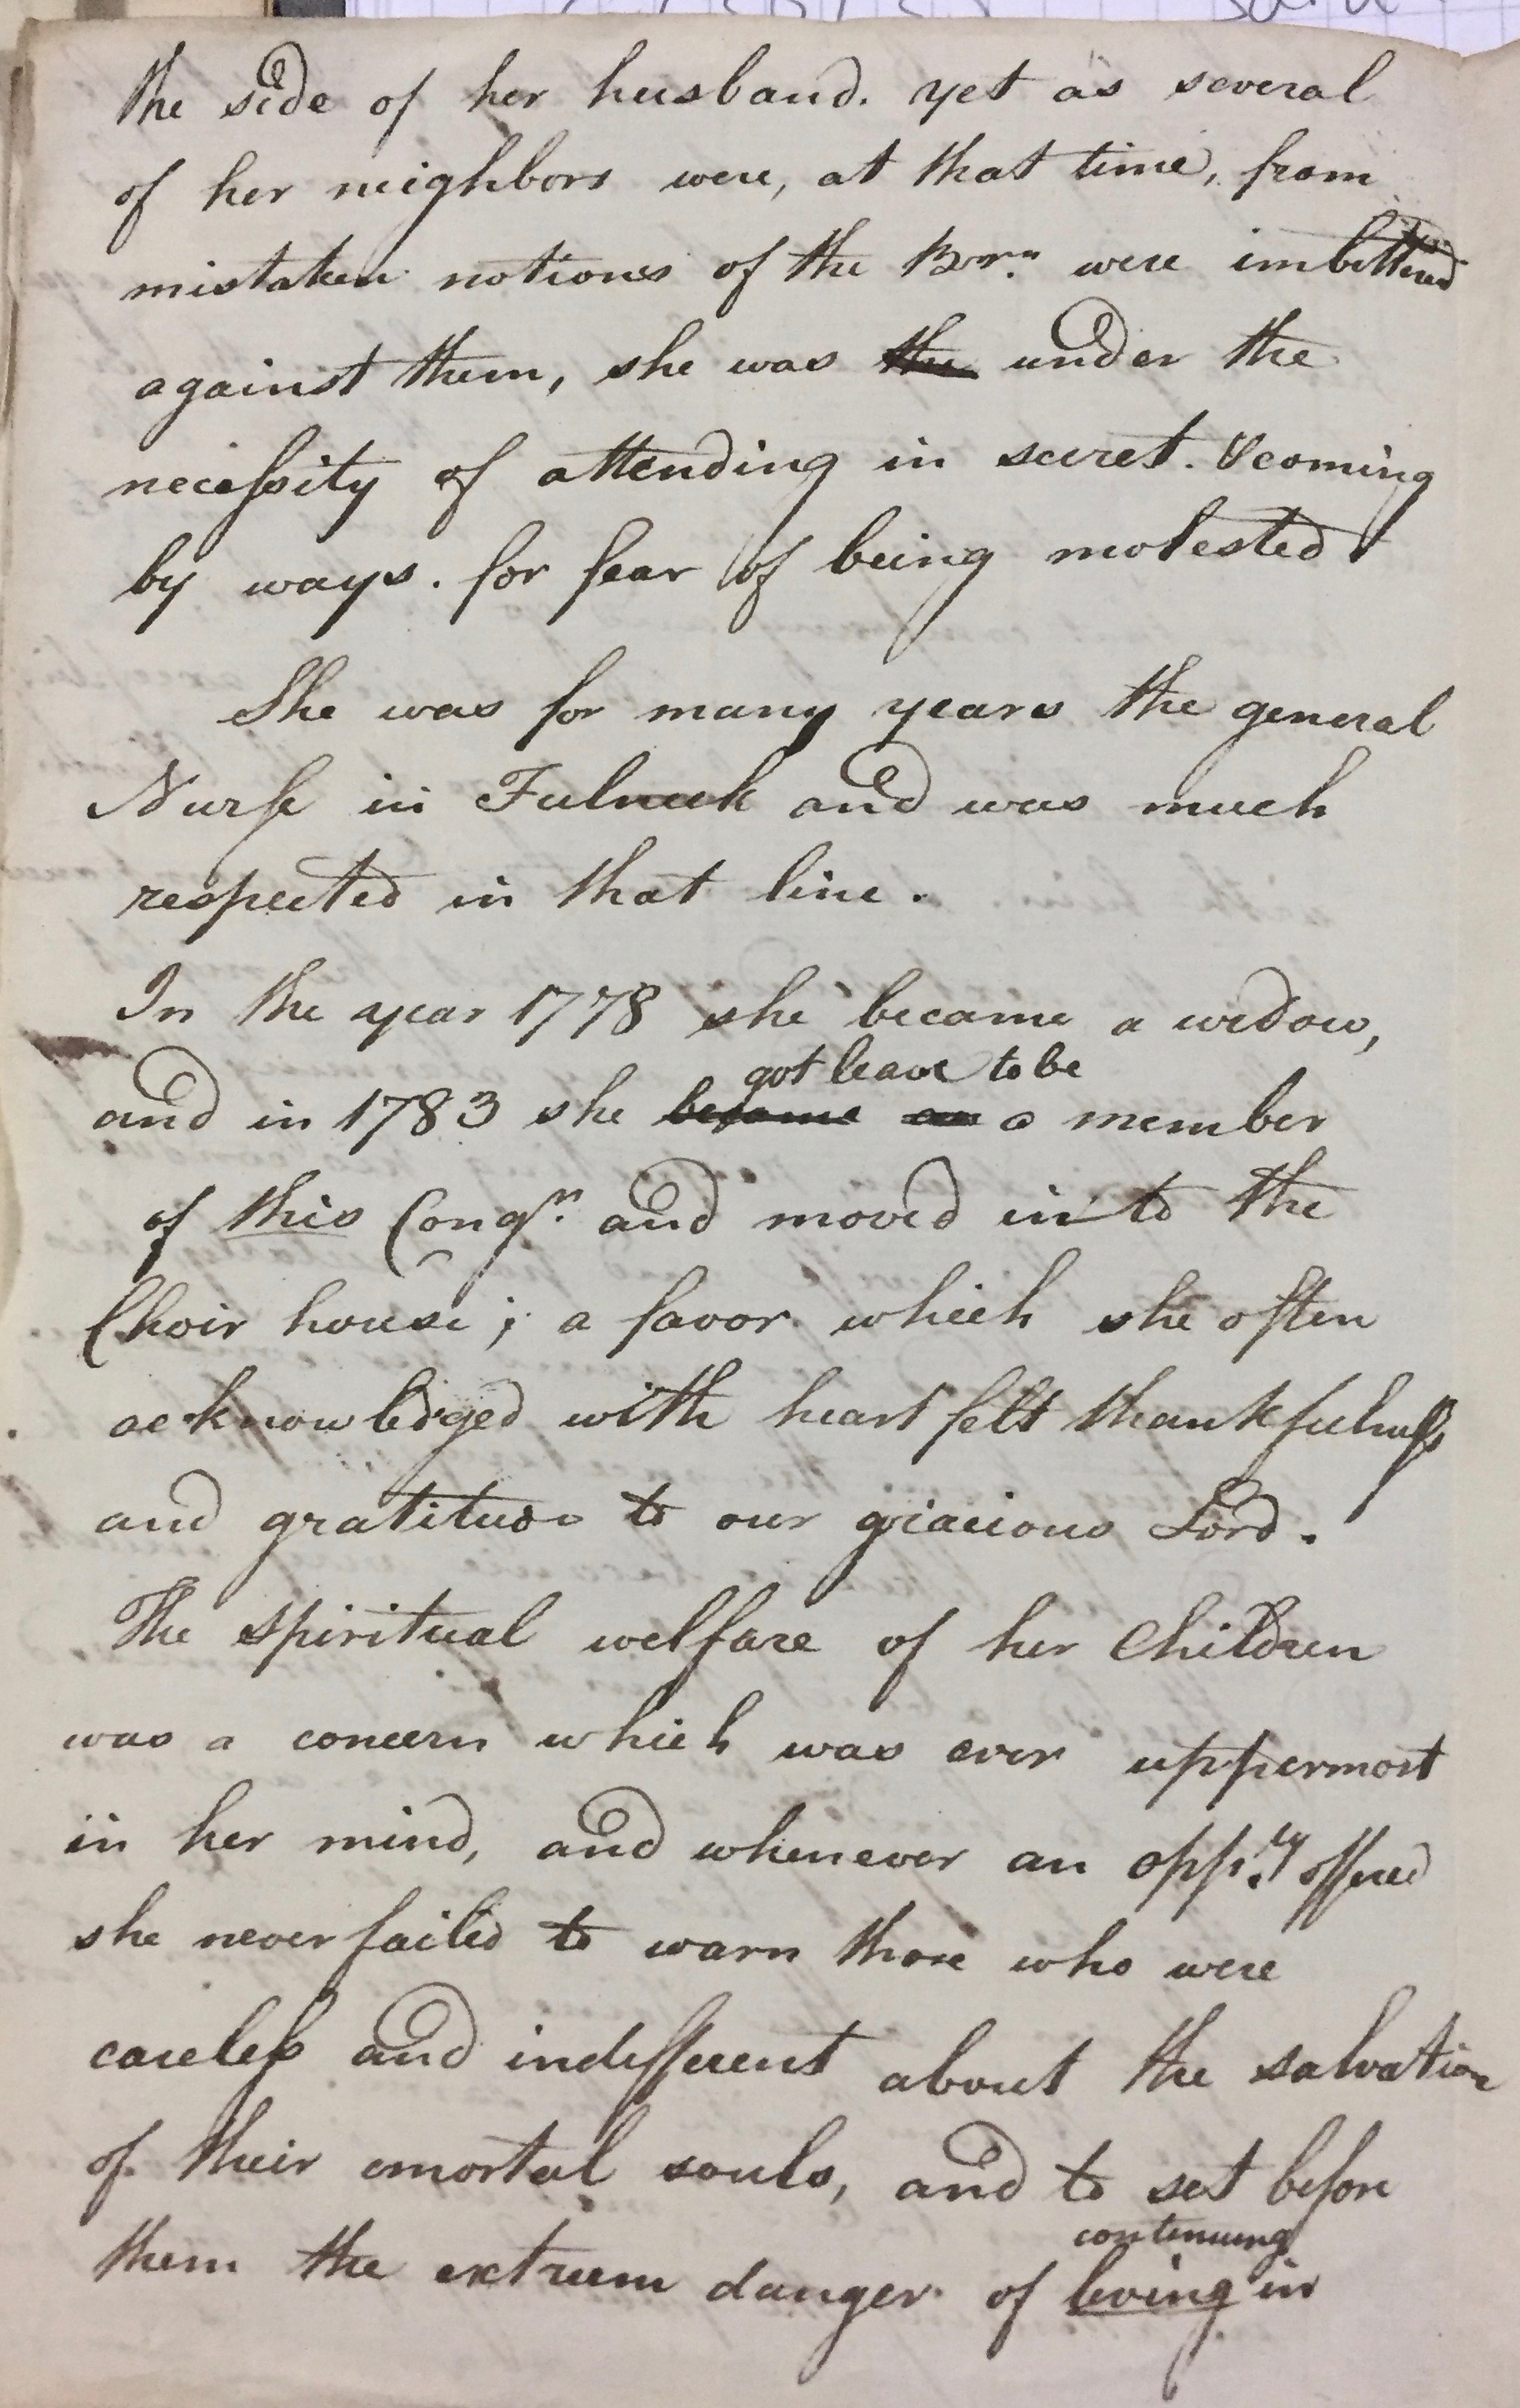 the side of her husband. yet as several
of her neighbors were, at that time, from
mistaken notions of the Brn. were imbittered
against them, she was the under the
necessity of attending in secret. & coming
by ways. for fear of being molested
She was for many years the general
Nurse in Fulneck and was much
respected in that line.
In the year 1778 she became a widow,
got leave to be
and in 1783 she became an a member
of this Congn. and moved in to the
Choir house; a favor which she often
acknowledged with heart felt thankfulness
and gratitude to our gracious Lord.
The spiritual welfare of her Children
was a concern which was ever uppermost
in her mind, and whenever an oppr.ty offered
she never failed to warn those who were
careless and indifferent about the salvation
of their emortal souls, and to set before
continuing
them the extreem danger of living in